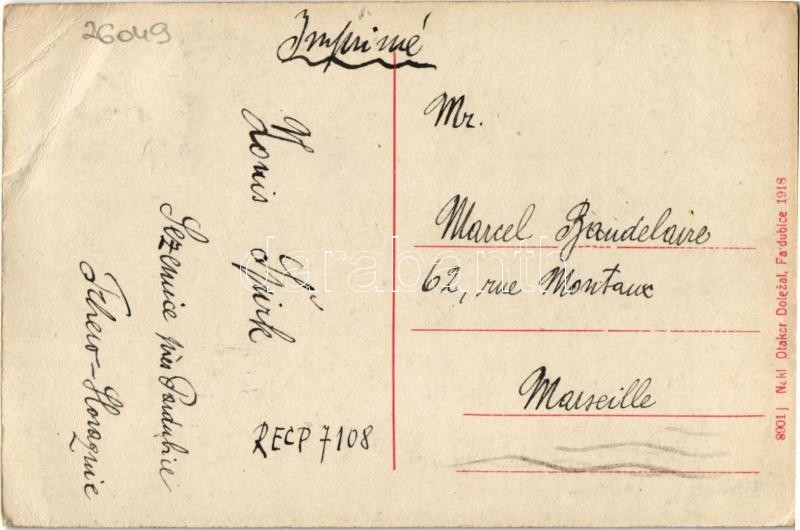 26049
Imprimé
Mr.
Marcel Baudelaire
62, rue Montaux
Marseille
Louis Špirk
Sezemice près Pardubice
RECP 7108
8901j Nakl Otakar Doležal, Pardubice 1918
darabanth